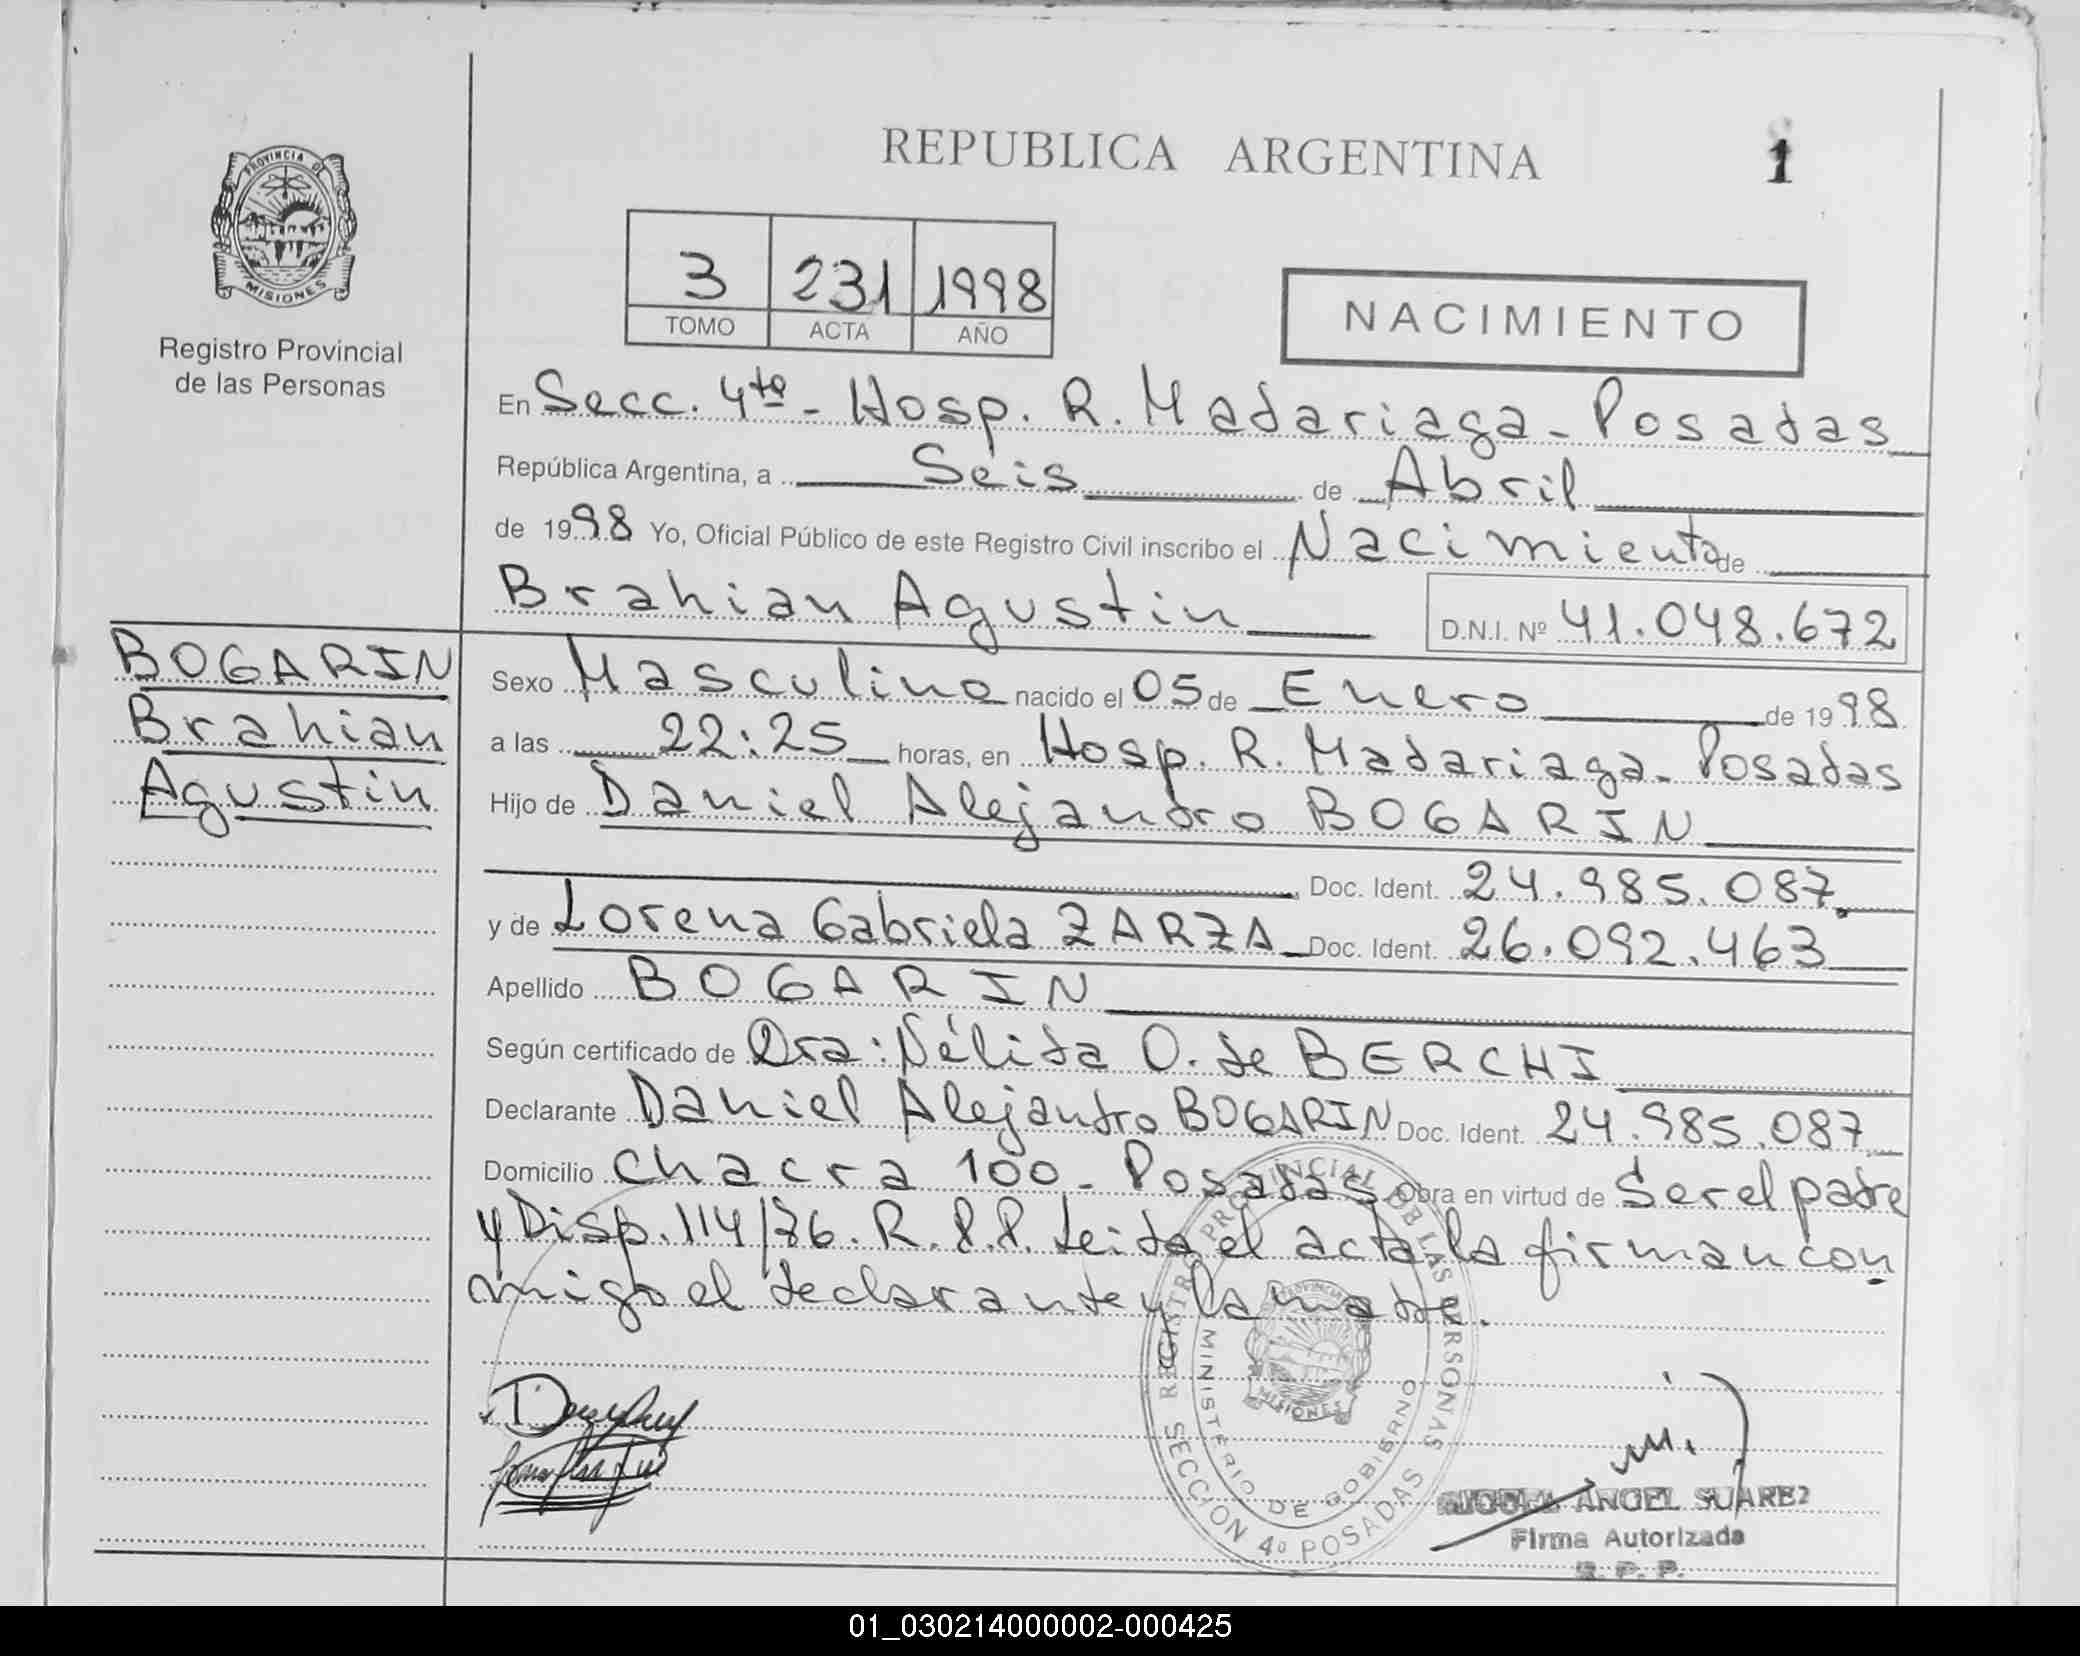 REPUBLICA ARGENTINA
1
PROVINCIA DE
MISIONES
Registro Provincial
de las Personas
3 231 1998
TOMO ACTA AÑO
NACIMIENTO
En Secc. 4ta - Hosp. R. Madariaga - Posadas
República Argentina, a Seis de Abril
de 1998 Yo, Oficial Público de este Registro Civil inscribo el Nacimiento de
Brahian Agustin D.N.I. Nº 41.048.672
BOGARIN
Brahian
Agustin
Sexo Masculino nacido el 05 de Enero de 1998
a las 22:25 horas, en Hosp. R. Madariaga - Posadas
Hijo de Daniel Alejandro BOGARIN
Doc. Ident. 24.985.087
y de Lorena Gabriela ZARZA Doc. Ident. 26.092.463
Apellido BOGARIN
Según certificado de Dra: Nélida O. de BERCHI
Declarante Daniel Alejandro BOGARIN Doc. Ident. 24.985.087
Domicilio Chacra 100 - Posadas Obra en virtud de Ser el padre
y Disp. 114/76. R.P.P. Leida el acta la firman con
migo el declarante y la madre.
REGISTRO PROVINCIAL DE LAS PERSONAS
MINISTERIO DE GOBIERNO
MISIONES
SECCION 4º POSADAS
MIGUEL ANGEL SUAREZ
Firma Autorizada
R. P. P.
01_030214000002-000425